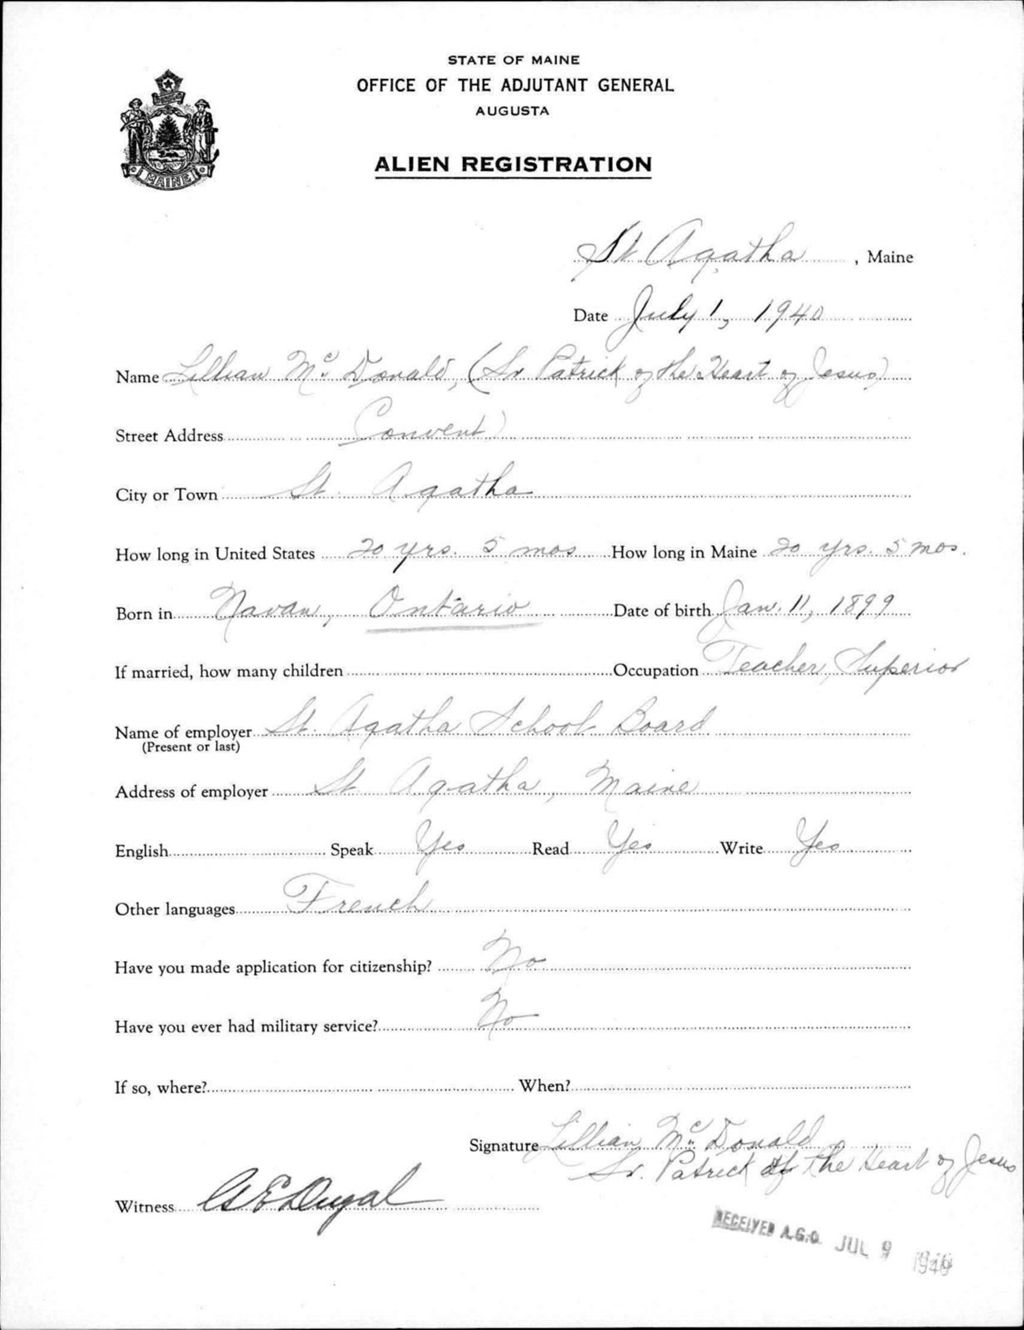 STATE OF MAINE
OFFICE OF THE ADJUTANT GENERAL
AUGUSTA
ALIEN REGISTRATION
MAINE
St Agatha, Maine
Date July 1, 1940
Name Lillian Mc Donald, (Sr Patrick of the Heart of Jesus)
Street Address Convent
City or Town St. Agatha
How long in United States 20 yrs. 5 mos How long in Maine 20 yrs. 5 mos.
Born in Navan, Ontario Date of birth Jan. 11, 1899
If married, how many children Occupation Teacher, Superior
Name of employer St. Agatha School Board
(Present or last)
Address of employer St Agatha, Maine
English Speak Yes Read Yes Write Yes
Other languages French
Have you made application for citizenship? No
Have you ever had military service? No
If so, where? When?
Signature Lillian Mc Donald
Sr. Patrick of the Heart of Jesus
Witness A E Dugal
RECEIVED A.G.O. JUL 9 1940